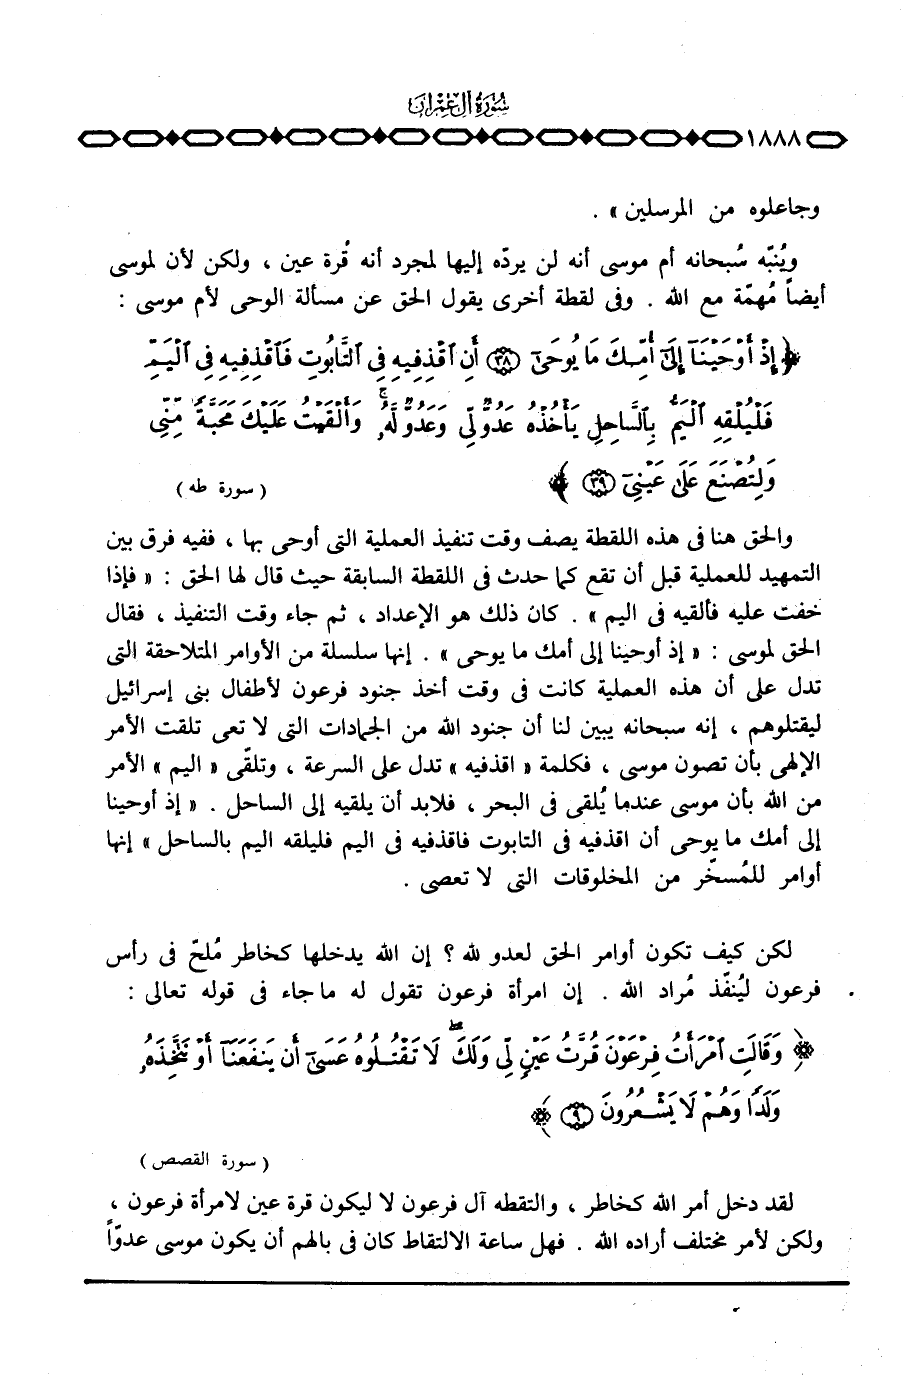 سُورَةُ آلِ عِمْرَان
١٨٨٨
وجاعلوه من المرسلين » .
ويُنبّه سُبحانه أم موسى أنه لن يردّه إليها لمجرد أنه قُرة عين ، ولكن لأن لموسى
أيضاً مُهمّة مع الله . وفى لقطة أخرى يقول الحق عن مسألة الوحى لأم موسى :
﴿ إِذْ أَوْحَيْنَآ إِلَىٰٓ أُمِّكَ مَا يُوحَىٰٓ ﴿٣٨﴾ أَنِ ٱقْذِفِيهِ فِى ٱلتَّابُوتِ فَٱقْذِفِيهِ فِى ٱلْيَمِّ
فَلْيُلْقِهِ ٱلْيَمُّ بِٱلسَّاحِلِ يَأْخُذْهُ عَدُوٌّ لِّى وَعَدُوٌّ لَّهُۥ ۚ وَأَلْقَيْتُ عَلَيْكَ مَحَبَّةً مِّنِّى
وَلِتُصْنَعَ عَلَىٰ عَيْنِىٓ ﴿٣٩﴾ ﴾
( سورة طه )
والحق هنا فى هذه اللقطة يصف وقت تنفيذ العملية التى أوحى بها ، ففيه فرق بين
التمهيد للعملية قبل أن تقع كما حدث فى اللقطة السابقة حيث قال لها الحق : « فإذا
خفت عليه فألقيه فى اليم » . كان ذلك هو الإعداد ، ثم جاء وقت التنفيذ ، فقال
الحق لموسى : « إذ أوحينا إلى أمك ما يوحى » . إنها سلسلة من الأوامر المتلاحقة التى
تدل على أن هذه العملية كانت فى وقت أخذ جنود فرعون لأطفال بنى إسرائيل
ليقتلوهم ، إنه سبحانه يبين لنا أن جنود الله من الجمادات التى لا تعى تلقت الأمر
الإلهى بأن تصون موسى ، فكلمة « اقذفيه » تدل على السرعة ، وتلقّى « اليم » الأمر
من الله بأن موسى عندما يُلقى فى البحر ، فلابد أن يلقيه إلى الساحل . « إذ أوحينا
إلى أمك ما يوحى أن اقذفيه فى التابوت فاقذفيه فى اليم فليلقه اليم بالساحل » إنها
أوامر للمُسخّر من المخلوقات التى لا تعصى .
لكن كيف تكون أوامر الحق لعدو لله ؟ إن الله يدخلها كخاطر مُلحّ فى رأس
فرعون ليُنفّذ مُراد الله . إن امرأة فرعون تقول له ما جاء فى قوله تعالى :
﴿ وَقَالَتِ ٱمْرَأَتُ فِرْعَوْنَ قُرَّتُ عَيْنٍ لِّى وَلَكَ ۖ لَا تَقْتُلُوهُ عَسَىٰٓ أَن يَنفَعَنَآ أَوْ نَتَّخِذَهُۥ
وَلَدًا وَهُمْ لَا يَشْعُرُونَ ﴿٩﴾ ﴾
( سورة القصص )
لقد دخل أمر الله كخاطر ، والتقطه آل فرعون لا ليكون قرة عين لامرأة فرعون ،
ولكن لأمر مختلف أراده الله . فهل ساعة الالتقاط كان فى بالهم أن يكون موسى عدوّاً